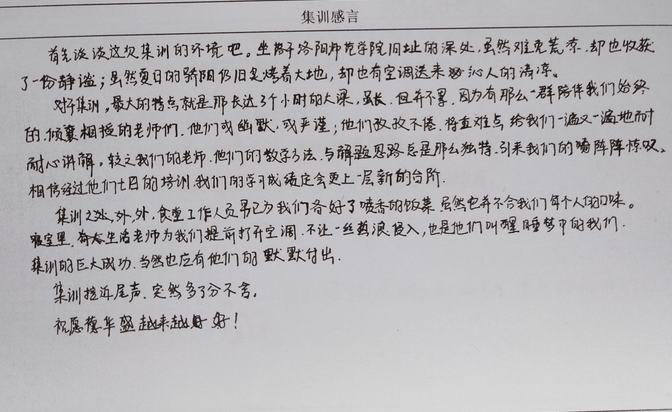 集训感言
首先谈谈这次集训的环境吧。坐落于洛阳师范学院旧址的深处,虽然难免荒凉,却也收获
了一份静谧;虽然夏日的骄阳仍旧炙烤着大地,却也有空调送来沁人的清凉。
对于集训,最大的特点就是那长达3个小时的大课,虽长,但并不累,因为有那么一群陪伴我们始终
的,倾囊相授的老师们,他们或幽默,或严谨;他们孜孜不倦,将重难点给我们一遍又一遍地耐
心讲解。较之我们的老师,他们的教学方法、与解题思路总是那么独特,引来我们的阵阵惊叹。
相信经过他们七日的培训,我们的学习成绩定会更上一层新的台阶。
集训之处,外,食堂工作人员早已为我们备好了喷香的饭菜,虽然也并不合我们每个人的口味。
寝室里,生活老师为我们提前打开空调,不让一丝热浪侵入,也是他们叫醒睡梦中的我们.
集训的巨大成功,当然也应有他们的默默付出.
集训接近尾声,突然多了分不舍。
祝愿德华盛越来越好!